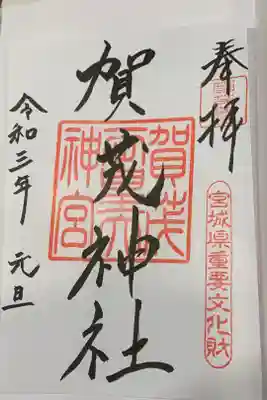 奉拝
宮城県重要文化財
賀茂神社
令和三年 元旦